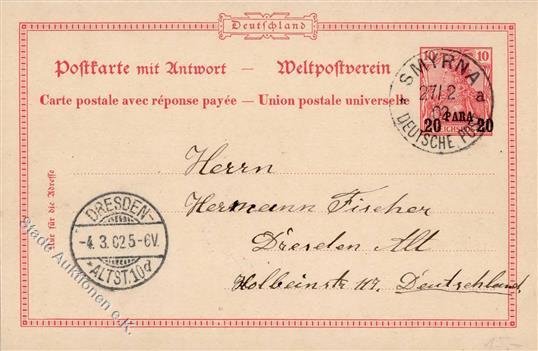 Deutschland
Postkarte mit Antwort – Weltpostverein
Carte postale avec réponse payée – Union postale universelle
10 10
SMYRNA
27/12 a
02
DEUTSCHE POST
20 PARA 20
REICHSPOST
Nur für die Adresse
DRESDEN-
-4.3.02 5-6V.
*ALTST.10d
Herrn
Hermann Fischer
Dresden Alt
Holbeinstr 119. Deutschland.
Stade Auktionen e.K.